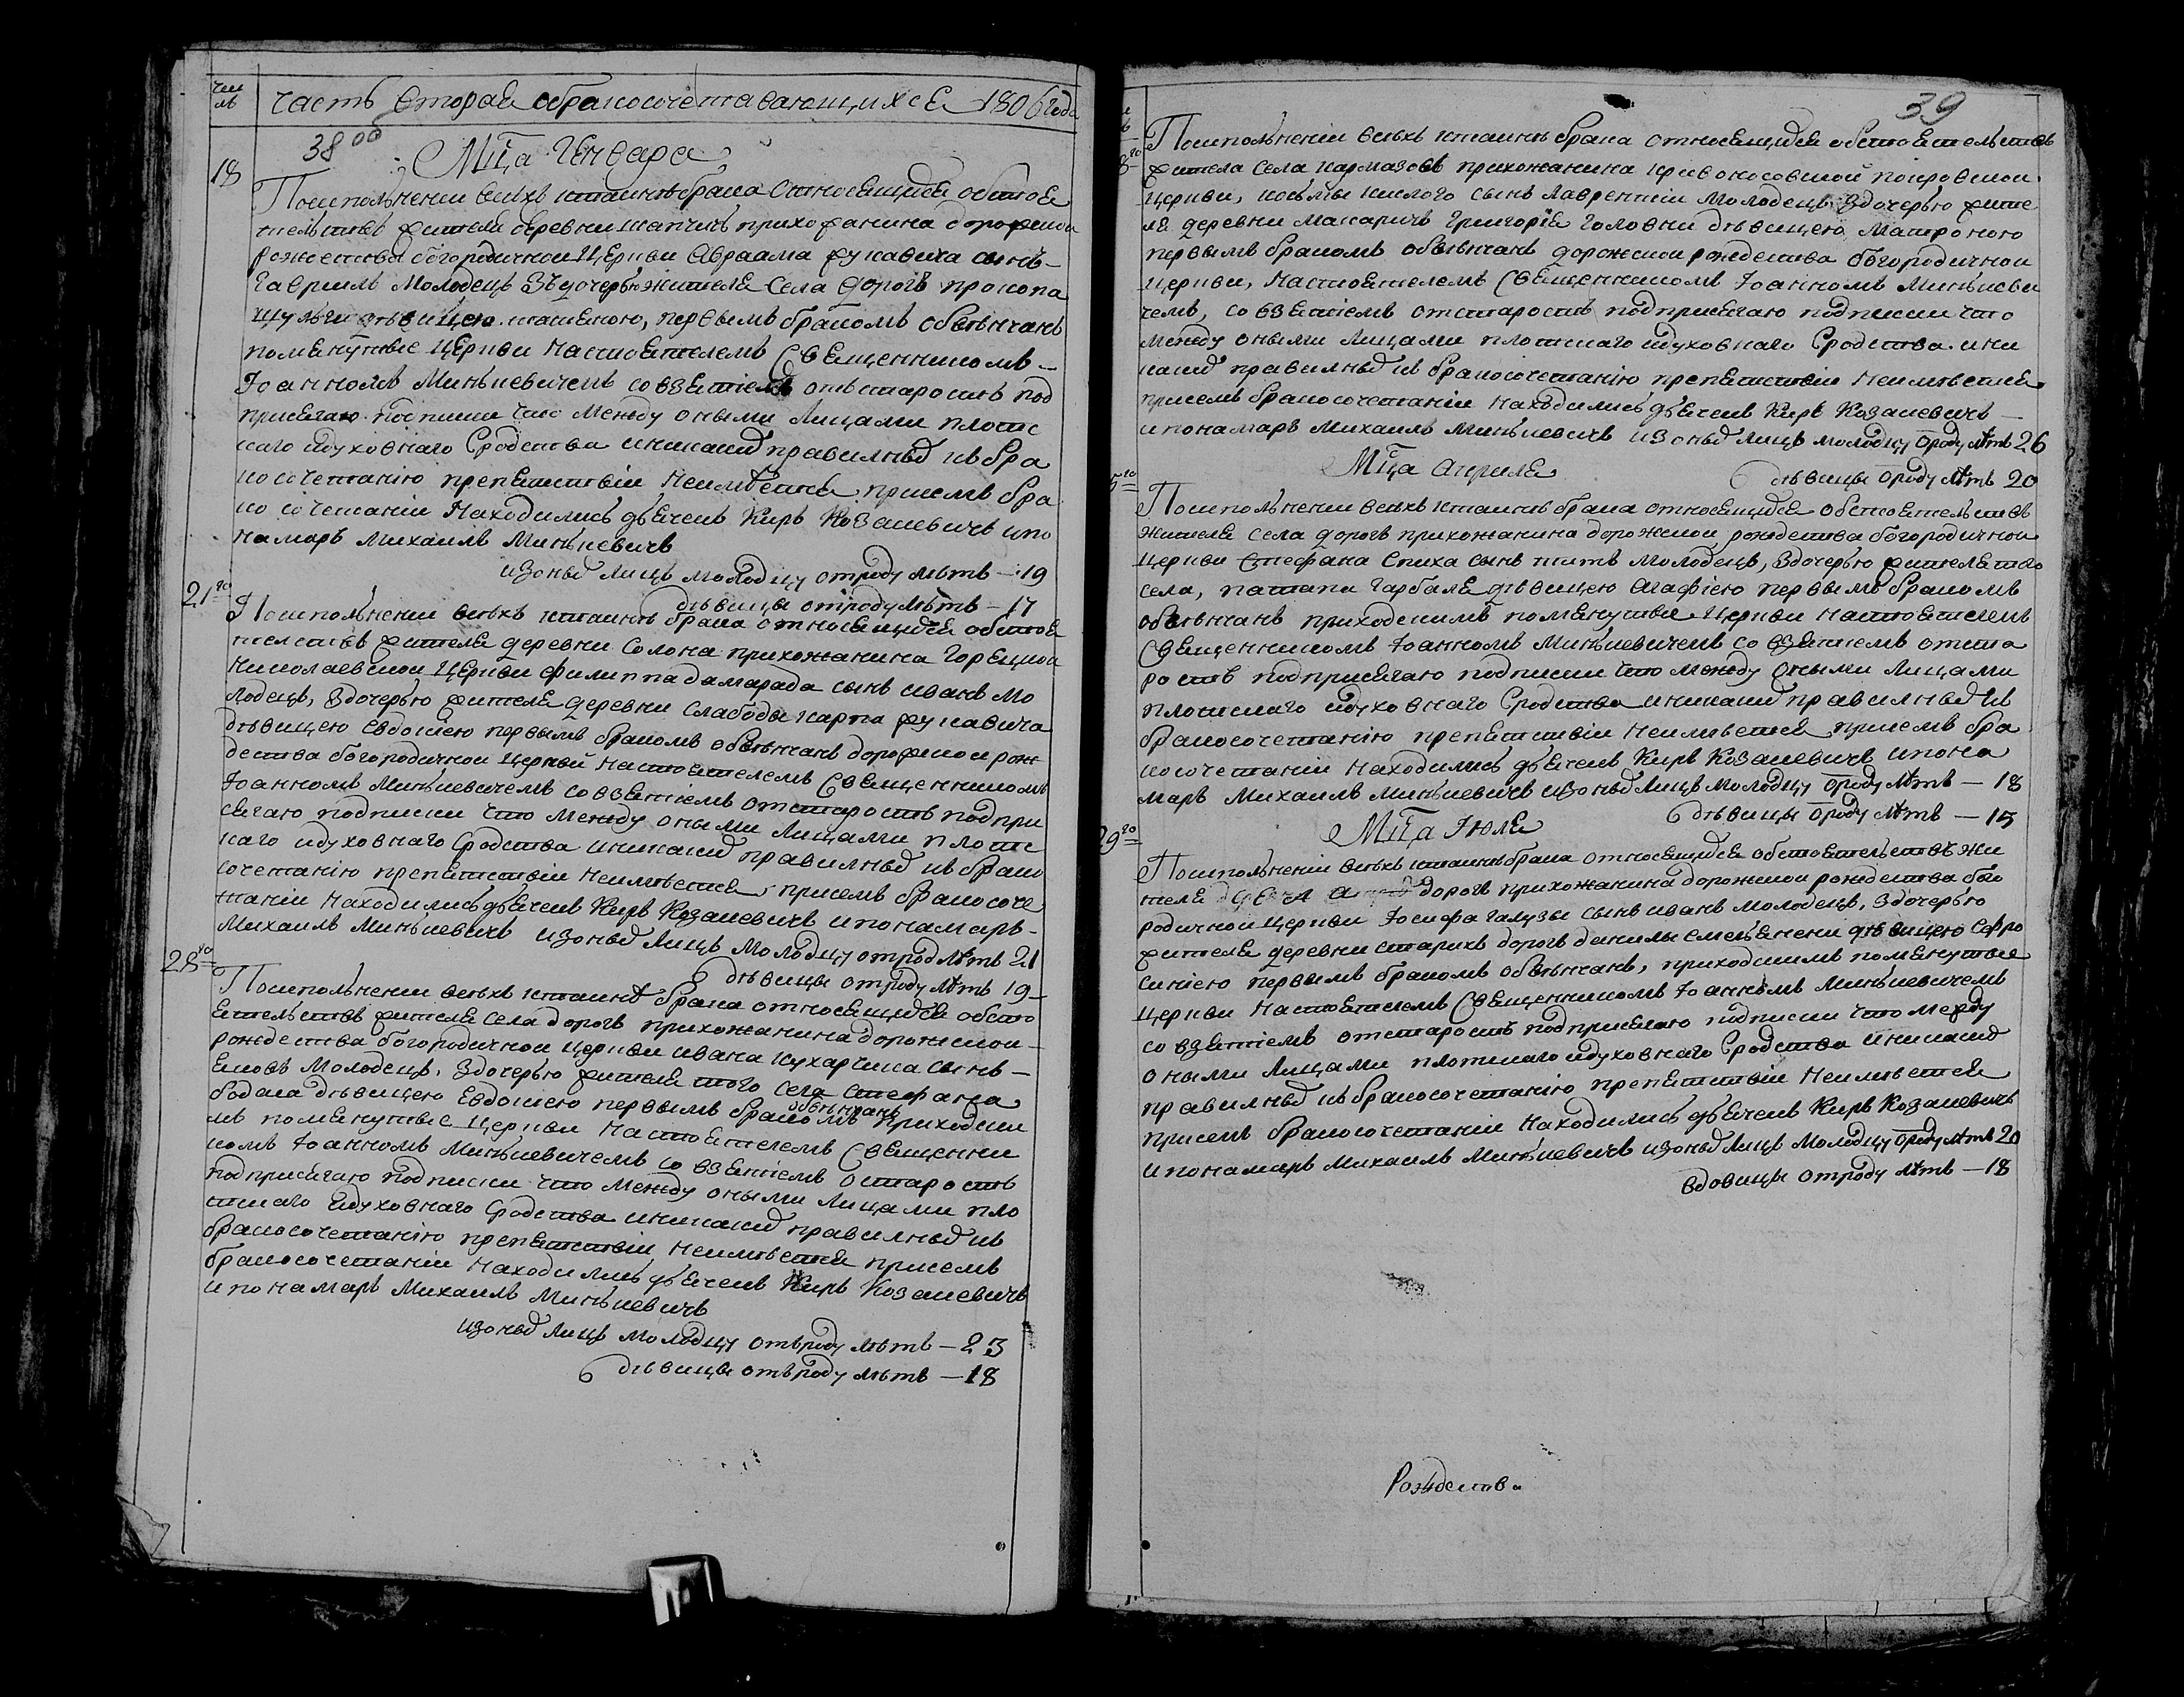 Чис
ла
часть вторая о бракосочетавающихся 1806 года
38 об
Мца Генваря
18
По исполнении всѣхъ к таинству брака относящихся обстоя
тельствъ жителя деревни прихожанина дорожской
рождества богородичной церкви Авраама рукавиха сынъ
Гавриилъ молодецъ зъ дочерью жителя села дорогъ прокопа
дѣвицею первымъ бракомъ обвѣнчанъ
помянутыя церкви настоятелемъ священникомъ
Іоанномъ Минькевичемъ со взятіемъ отъ старостъ под
присягаю подписки что между оными лицами плотс
каго и духовнаго сродства и никакихъ правилныхъ къ бра
косочетанію препятствіи неимѣется, при семъ бра
косочетаніи находились дьячекъ Киръ Козакевичъ и по
намаръ Михаилъ Минькевичъ
из оныхъ лицъ молодцу отроду лѣтъ — 19
дѣвицы отроду лѣтъ — 17
21го
По исполнении всѣхъ к таинству брака относящихся обстоя
телствъ жителя деревни Солона прихожанина Горецкой
Николаевской церкви Филиппа дамарада сынъ иванъ мо
лодецъ, здочерью жителя деревни Слабоды карпа рукавича
дѣвицею Евдокіею первымъ бракомъ обвѣнчанъ дорожской рож
дества богородичной церкви настоятелемъ священникомъ
Іоанномъ Минькевичемъ со взятіемъ отстаростъ подпри
сягаю подписки что между оными лицами плотс
каго и духовнаго сродства и никакихъ правилныхъ къ брако
сочетанію препятствіи неимѣется, при семъ бракосоче
таніи находились дьячекъ Киръ Козакевичъ и понамаръ
Михаилъ Минькевичъ изоныхъ лицъ молодцу отрод лѣтъ 21
дѣвицы отроду лѣтъ 19
28го
По исполнении всѣхъ к таинству брака относящихся обсто
ятельствъ жителя села дорогъ прихожанина дорожской
рождества богородичной церкви ивана кухарчика сынъ
яковъ молодецъ, здочерью жителя того села стефана
бодака дѣвицею Евдокіею первымъ бракомъ обвѣнчанъ приходски
мъ помянутыя церкви настоятелемъ священни
комъ Іоанномъ Минькевичемъ со взятіемъ о старостъ
подприсягаю подписки что между оными лицами пло
тскаго и духовнаго сродства и никакихъ правилныхъ къ
бракосочетанію препятствіи неимѣется при семъ
бракосочетаніи находились дьячекъ Киръ Козакевичъ
и понамаръ Михаилъ Минькевичъ
изоныхъ лицъ молодцу отъроду лѣтъ — 23
дѣвицы отъроду лѣтъ — 18
39
По исполненіи всѣхъ к таинству брака относящихся обстоятельствъ
жителя села кармазовъ прихожанина кривоносовской покровской
церкви, косьмы кислого сынъ лаврентіи молодецъ здочерью жите
ля деревни макаричъ григорія головни дѣвицею матроною
первымъ бракомъ обвѣнчанъ дорожской рождества богородичной
церкви, настоятелемъ священникомъ Іоанномъ Минькеви
чемъ, со взятіемъ отстаростъ подприсягаю подписки что
между оными лицами плотскаго и духовнаго сродства и ни
какихъ правилныхъ къ бракосочетанію препятствіи неимѣется
при семъ бракосочетаніи находились дьячекъ Киръ Козакевичъ
и понамаръ Михаилъ Минькевичъ изоныхъ лицъ молодцу отроду лѣтъ 26
дѣвицы отроду лѣтъ 20
Мца Априля
5го
По исполнении всѣхъ к таинству брака относящихся обстоятельствъ
жителя села дорогъ прихожанина дорожской рождества богородичной
церкви стефана спиха сынъ титъ молодецъ, здочерью жителя того
села, патапа гарбаля дѣвицею агафіею первымъ бракомъ
обвѣнчанъ приходскимъ помянутыя церкви настоятелемъ
священникомъ Іоанномъ Минькевичемъ со взятіемъ отста
ростъ подприсягаю подписки что между оными лицами
плотскаго и духовнаго сродства и никакихъ правилныхъ къ
бракосочетанію препятствіи неимѣется при семъ бра
косочетаніи находились дьячекъ Киръ Козакевичъ и пона
маръ Михаилъ Минькевичъ изоныхъ лицъ молодцу отроду лѣтъ — 18
дѣвицы отроду лѣтъ — 15
Мца Іюля
29го
По исполненіи всѣхъ к таинству брака относящихся обстоятельствъ жи
теля села дорогъ прихожанина дорожской рождества бого
родичной церкви Іосифа галузы сынъ иванъ молодецъ, здочерью
жителя деревни старихъ дорогъ данилы дѣвицею Евфро
синіею первымъ бракомъ обвѣнчанъ, приходскимъ помянутыя
церкви настоятелемъ священникомъ Іоанномъ Минькевичемъ
со взятіемъ отстаростъ подприсягаю подписки что между
оными лицами плотскаго и духовнаго сродства и никакихъ
правилныхъ къ бракосочетанію препятствіи неимѣется
при семъ бракосочетаніи находились дьячекъ Киръ Козакевичъ
и понамаръ Михаилъ Минькевичъ изоныхъ лицъ молодцу отроду лѣтъ 20
вдовицы отроду лѣтъ — 18
Рождества